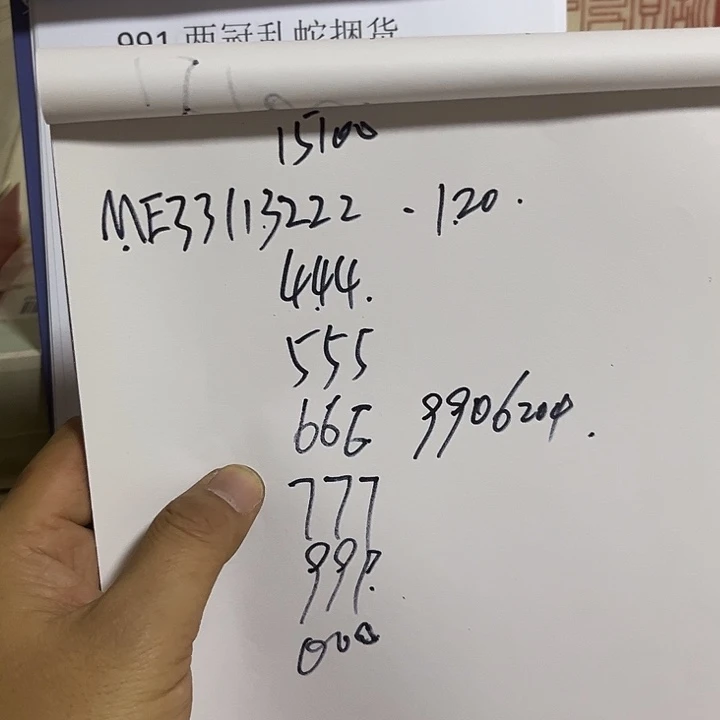 991 两冠乱蛇捆货
15100
ME33113222 - 120.
444.
555
666 9906204.
777
999.
000